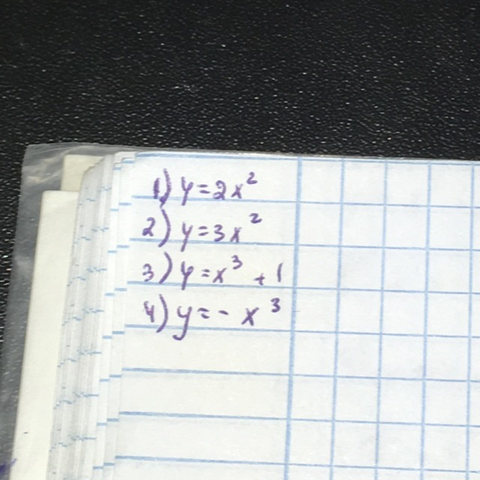 1) y = 2x²
2) y = 3x²
3) y = x³ + 1
4) y = - x³